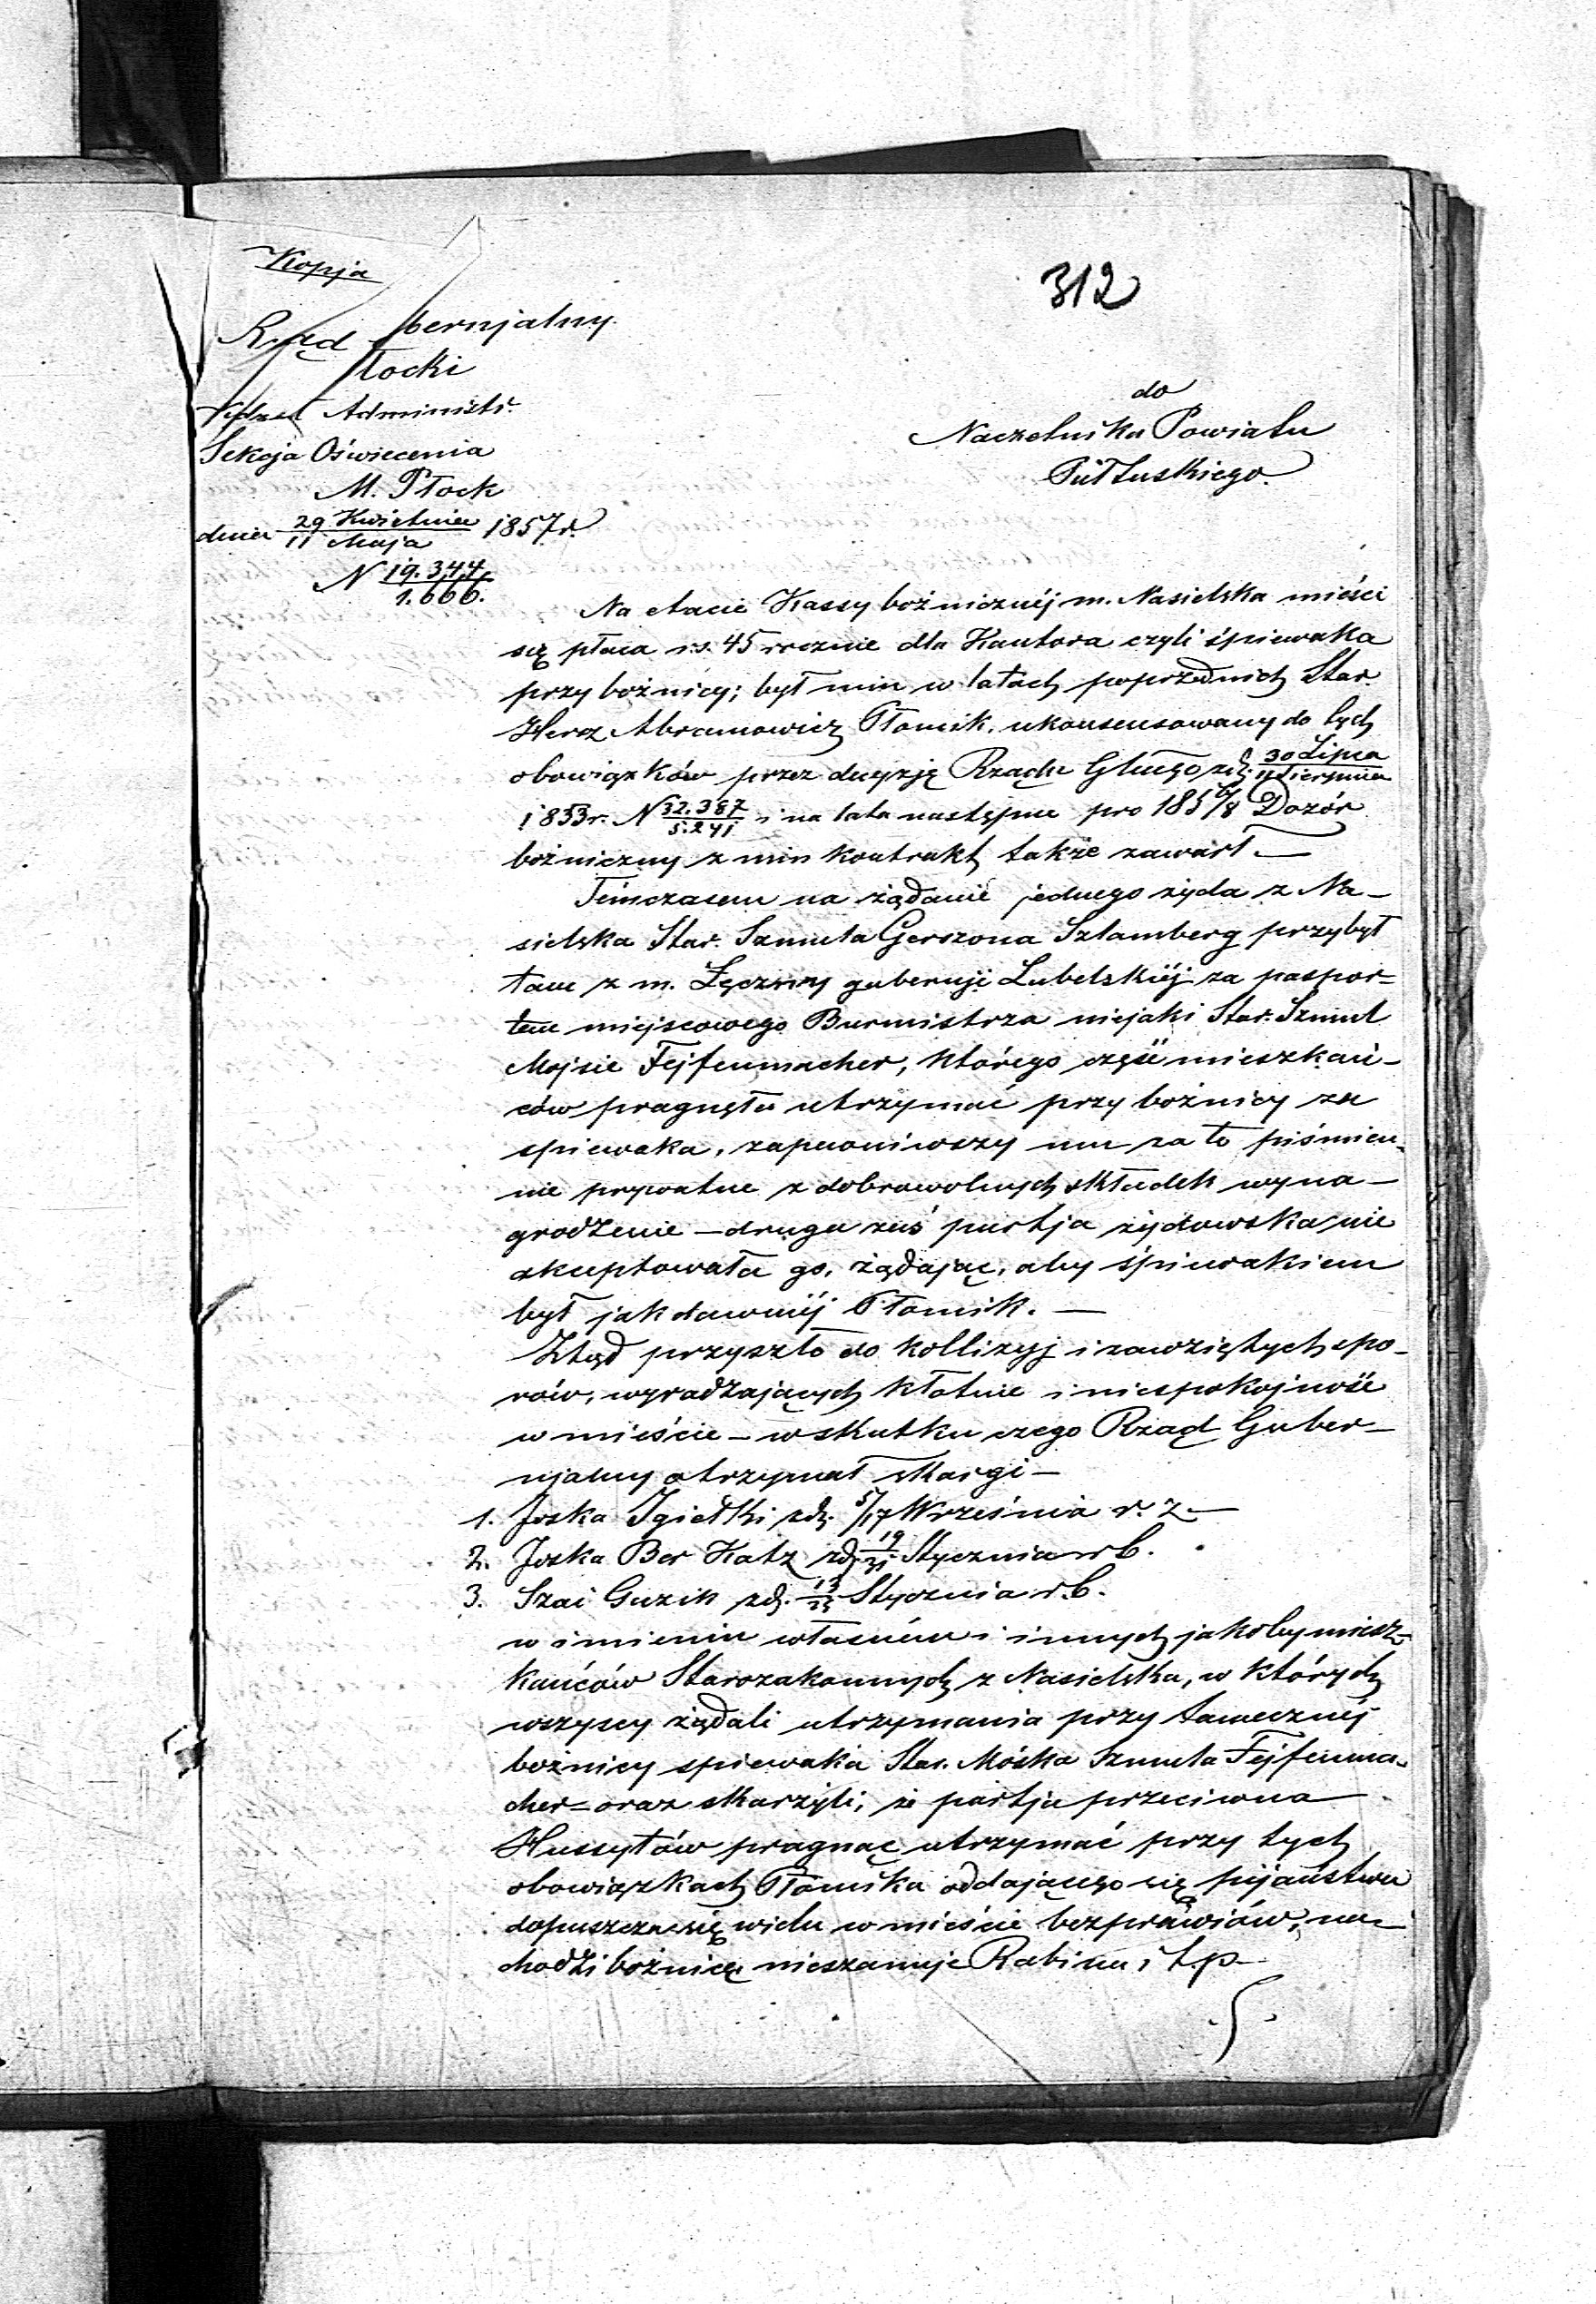 Kopja
312
Rząd bernjalny
łocki
Wydział Administr.
Sekcja Oświecenia
M. Płock
dnia 29 Kwietnia / 11 Maja 1857 r.
N 19.344 / 1.666.
do
Naczelnika Powiatu
Pułtuskiego.
Na etacie Kassy bożnicznéj m. Nasielska mieści
się płaca r.s. 45 rocznie dla Kantora czyli śpiewaka
przy bożnicy; był nim w latach poprzednich Star.
Hersz Abramowicz Płomik, ukonsensowany do tych
obowiązków przez decyzję Rządu Gbulgo zd. 30 Lipca / 11 Sierpnia
1853 r. N 32.387 / 5.241 i na lata następne pro 185 6/8 Dozór
bożniczny z nim kontrakt także zawarł. —
Tymczasem na żądanie jednego żyda z Na-
sielska Star. Szmula Gerszona Szlamberg przybył
tam z m. Łęczny gubernji Lubelskiéj za paspor=
tem miejscowego Burmistrza niejaki Star. Szmul
Mojsie Fejfenmacher, którego część mieszkań-
ców pragnęła utrzymać przy bożnicy za
spiewaka, zapewniwszy mu za to piśmien-
nie prywatne z dobrowolnych składek wyna-
grodzenie — druga zaś partja żydowska nie
akceptowała go, żądając, aby śpiewakiem
był jak dawniéj Płomik. —
Ztąd przyszło do kollizyj i zawziętych spo-
rów, wyradzających kłótnie i niespokojność
w mieście — w skutku czego Rząd Guber-
njalny otrzymał skargi —
1. Joska Igiełki zd. 5/17 Września r. z —
2. Joska Ber Katz zd. 19/31 Stycznia r b.
3. Szai Guzik zd. Stycznia r. b.
w imieniu własném i innych jakoby miesz-
kańców Starozakonnych z Nasielska, w których
wszyscy żądali utrzymania przy tamecznéj
bożnicy spiewaka Star. Mośka Szmula Fejfenma-
cher = oraz skarżyli, że partja przeciwna
Hussytów pragnąc utrzymać przy tych
obowiązkach Płomika oddającego się pijaństwu
dopuszcza się wielu w mieście bezprawiów, na-
chodzi bożnicę nieszanuje Rabina i t. p.